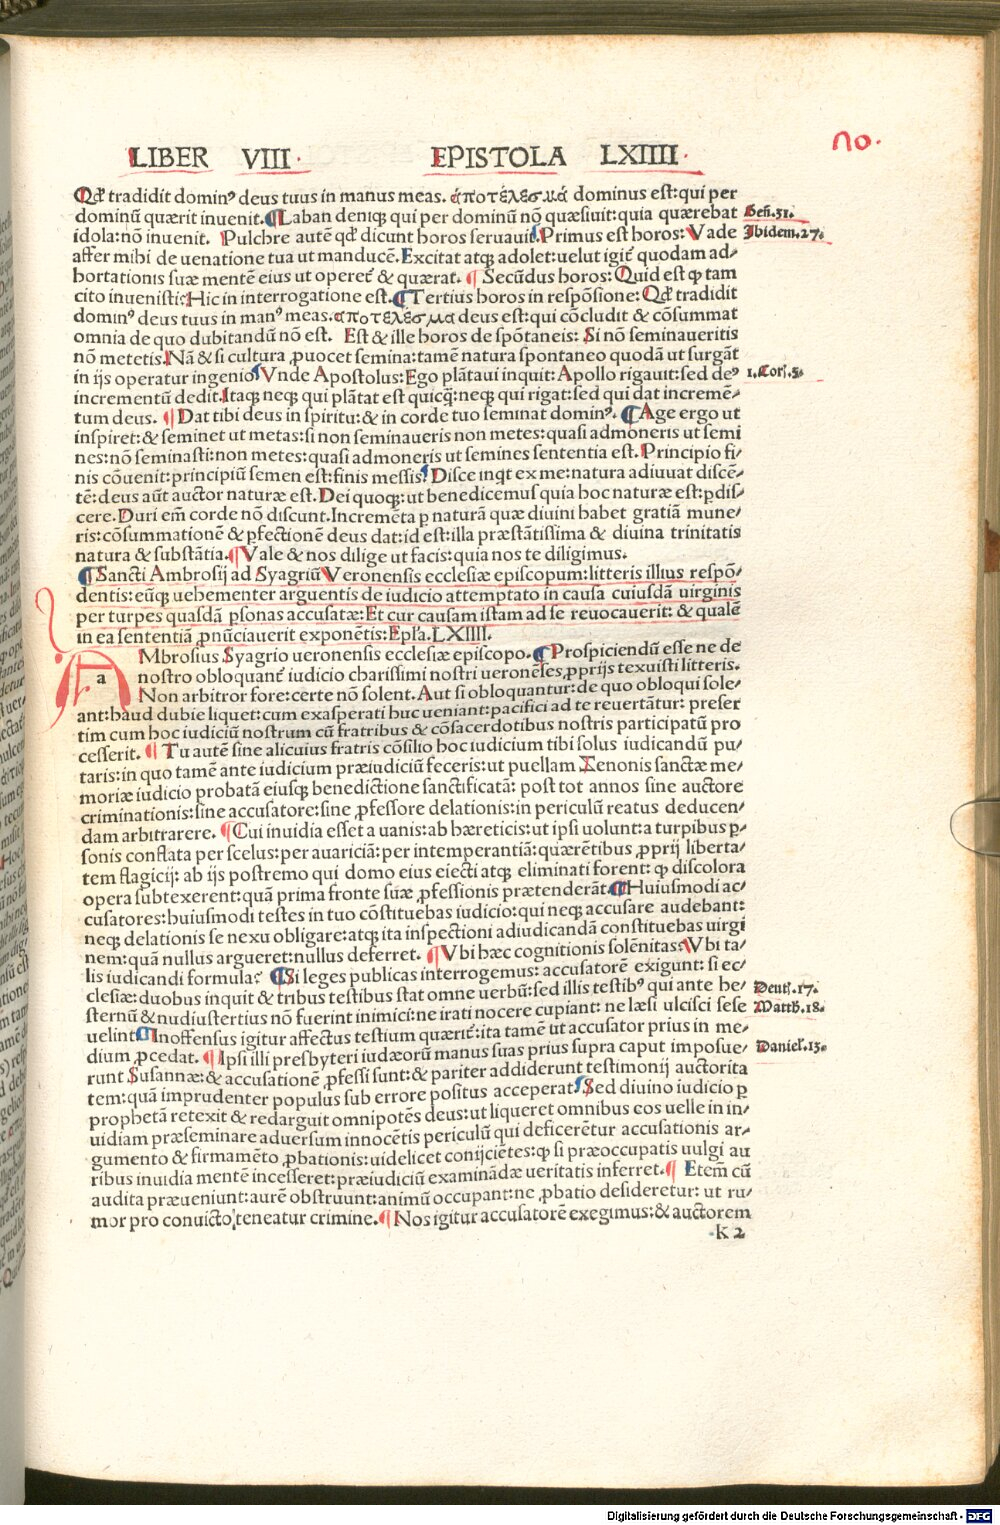 LIBER VIII · EPISTOLA LXIIII ·
70.
Qd' tradidit dominꝰ deus tuus in manus meas. ἀποτέλεσμά dominus est: qui per
dominū quærit inuenit. Laban deniqꝫ qui per dominū nō quæsiuit: quia quærebat
Geñ.31.
idola: nō inuenit. Pulchre autē qd' dicunt horos seruauit. Primus est horos: Vade
Ibidem.27.
affer mihi de uenatione tua ut manducē. Excitat atqꝫ adolet: uelut igit̄ quodam ad⸗
hortationis suæ mentē eius ut operet̄ & quærat. ¶ Secūdus horos: Quid est ꝙ tam
cito inuenisti: Hic in interrogatione est. ¶ Tertius horos in respōsione: Qd' tradidit
dominꝰ deus tuus in manꝰ meas. ἀποτελέσμα deus est: qui cōcludit & cōsummat
omnia de quo dubitandū nō est. Est & ille horos de spōtaneis: Si nō seminaueritis
nō metetis. Nā & si cultura ꝓuocet semina: tamē natura spontaneo quodā ut surgāt
in ijs operatur ingenio. Vnde Apostolus: Ego plātaui inquit: Apollo rigauit: sed deꝰ
1.Cor.5.
incrementū dedit. Itaqꝫ neqꝫ qui plātat est quicq̄: neqꝫ qui rigat: sed qui dat incremē⸗
tum deus. ¶ Dat tibi deus in spiritu: & in corde tuo seminat dominꝰ. ¶ Age ergo ut
inspiret: & seminet ut metas: si non seminaueris non metes: quasi admoneris ut semi
nes: nō seminasti: non metes: quasi admoneris ut semines sententia est. Principio fi⸗
nis cōuenit: principiū semen est: finis messis. Disce inqt ex me: natura adiuuat discē⸗
tē: deus aūt auctor naturæ est. Dei quoqꝫ: ut benedicemus quia hoc naturæ est: ꝑdis⸗
cere. Duri em̄ corde nō discunt. Incremēta ꝑ naturā quæ diuini habet gratiā mune⸗
ris: cōsummationē & ꝑfectionē deus dat: id est: illa præstātissima & diuina trinitatis
natura & substātia. ¶ Vale & nos dilige ut facis: quia nos te diligimus.
¶ Sancti Ambrosij ad Syagriū Veronensis ecclesiæ episcopum: litteris illius respō⸗
dentis: eūqꝫ uehementer arguentis de iudicio attemptato in causa cuiusdā uirginis
per turpes quasdā ꝑsonas accusatæ: Et cur causam istam ad se reuocauerit: & qualē
in ea sententiā ꝓnūciauerit exponētis: Epĺa. LXIIII.
a
AMbrosius Syagrio ueronensis ecclesiæ episcopo. ¶ Prospiciendū esse ne de
nostro obloquant̄ iudicio charissimi nostri ueronēses, ꝓprijs texuisti litteris.
Non arbitror fore: certe nō solent. Aut si obloquantur: de quo obloqui sole⸗
ant: haud dubie liquet: cum exasperati huc ueniant: pacifici ad te reuertātur: preser
tim cum hoc iudiciū nostrum cū fratribus & cōsacerdotibus nostris participatū pro
cesserit. ¶ Tu autē sine alicuius fratris cōsilio hoc iudicium tibi solus iudicandū pu⸗
taris: in quo tamē ante iudicium præiudiciū feceris: ut puellam Zenonis sanctæ me⸗
moriæ iudicio probatā eiusqꝫ benedictione sanctificatā: post tot annos sine auctore
criminationis: sine accusatore: sine ꝓfessore delationis: in periculū reatus deducen⸗
dam arbitrarere. ¶ Cui inuidia esset a uanis: ab hæreticis: ut ipsi uolunt: a turpibus ꝑ⸗
sonis conflata per scelus: per auariciā: per intemperantiā: quærētibus ꝓprij liberta⸗
tem flagicij: ab ijs postremo qui domo eius eiecti atqꝫ eliminati forent: ꝙ discolora
opera subtexerent: quā prima fronte suæ ꝓfessionis prætenderāt. ¶ Huiusmodi ac⸗
cusatores: huiusmodi testes in tuo cōstituebas iudicio: qui neqꝫ accusare audebant:
neqꝫ delationis se nexu obligare: atqꝫ ita inspectioni adiudicandā constituebas uirgi
nem: quā nullus argueret: nullus deferret. ¶ Vbi hæc cognitionis solēnitas? Vbi ta⸗
lis iudicandi formula? ¶ Si leges publicas interrogemus: accusatorē exigunt: si ec⸗
clesiæ: duobus inquit & tribus testibus stat omne uerbū: sed illis testibꝰ qui ante he⸗
Deut̄.17.
sternū & nudiustertius nō fuerint inimici: ne irati nocere cupiant: ne læsi ulcisci sese
Matth.18.
uelint. ¶ Inoffensus igitur affectus testium quærit̄: ita tamē ut accusator prius in me⸗
dium ꝓcedat. ¶ Ipsi illi presbyteri iudæorū manus suas prius supra caput imposue⸗
Daniel.13.
runt Susannæ: & accusationē ꝓfessi sunt: & pariter addiderunt testimonij auctorita
tem: quā imprudenter populus sub errore positus acceperat. Sed diuino iudicio ꝑ
prophetā retexit & redarguit omnipotēs deus: ut liqueret omnibus eos uelle in in⸗
uidiam præseminare aduersum innocētis periculū qui deficerētur accusationis ar⸗
gumento & firmamēto ꝓbationis: uidelicet conijciētes: ꝙ si præoccupatis uulgi au
ribus inuidia mentē incesseret: præiudiciū examinādæ ueritatis inferret. ¶ Etem̄ cū
audita præueniunt: aurē obstruunt: animū occupant: ne ꝓbatio desideretur: ut ru⸗
mor pro conuicto, teneatur crimine. ¶ Nos igitur accusatorē exegimus: & auctorem
K 2
Digitalisierung gefördert durch die Deutsche Forschungsgemeinschaft - DFG